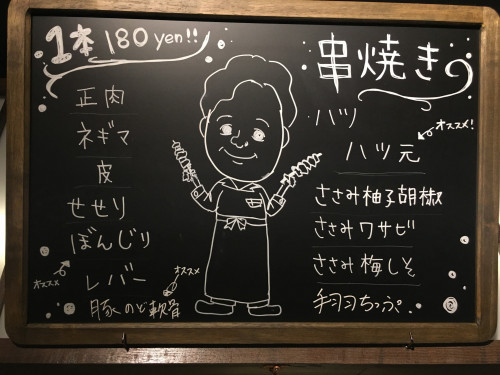 1本 180yen!!
正肉
ネギマ
皮
せせり
ぼんじり
オススメ
レバー
オススメ
豚のど軟骨
串焼き
ハツ
オススメ!
ハツ元
ささみ柚子胡椒
ささみワサビ
ささみ梅しそ
手羽ちっぷ